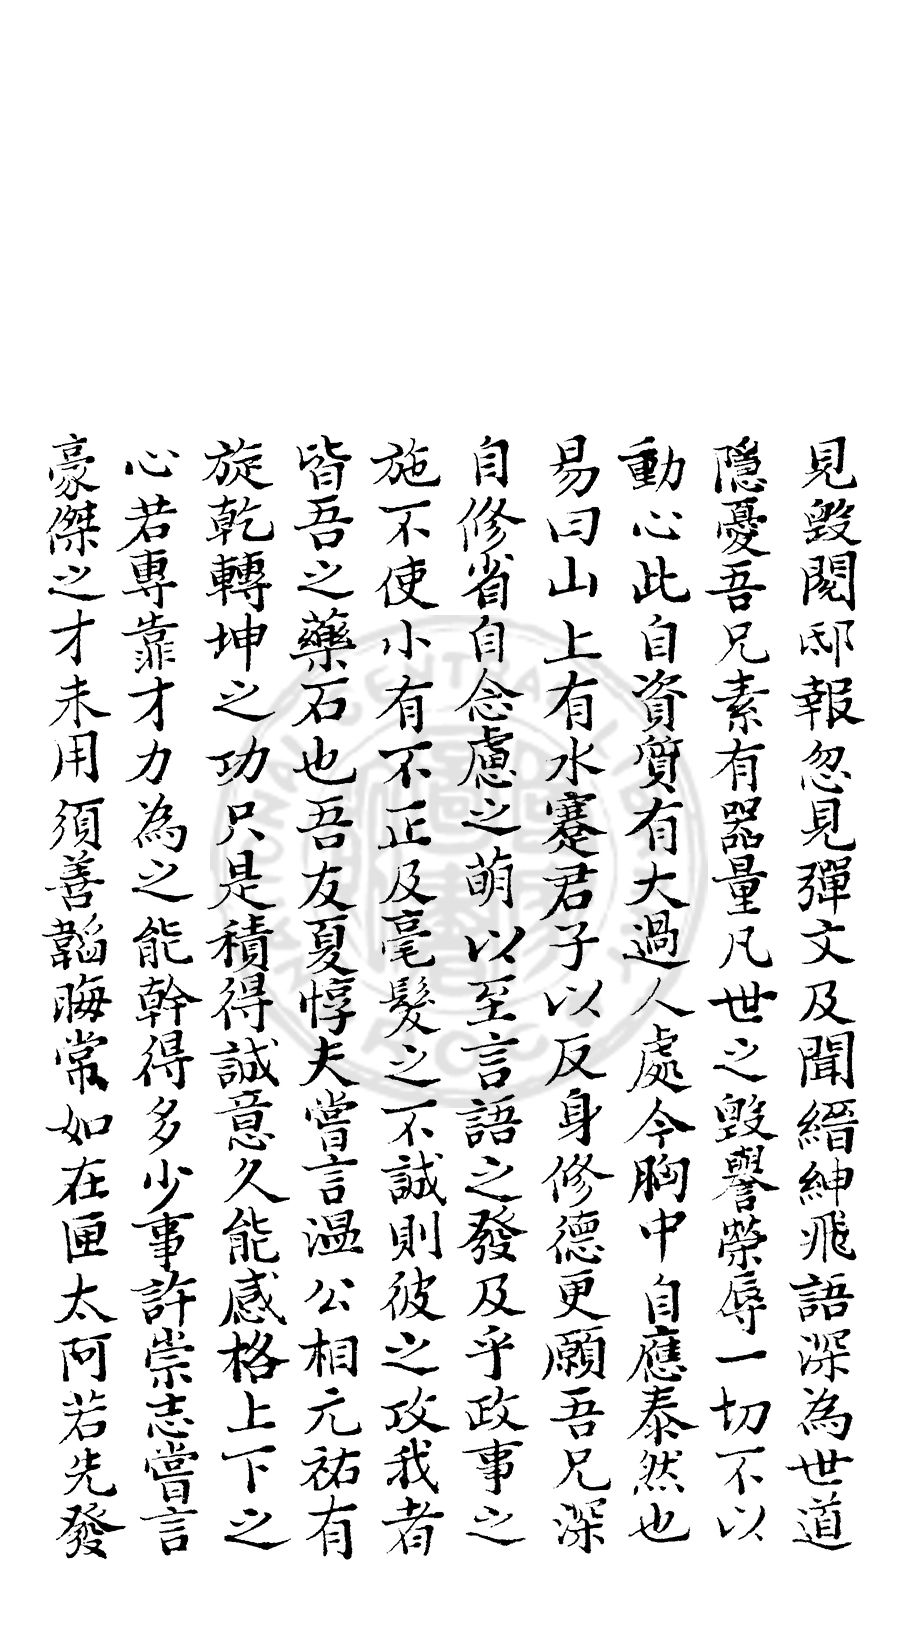 見毀閱邸報忽見彈文及聞縉紳飛語深為世道
隱憂吾兄素有器量凡世之毀譽榮辱一切不以
動心此自資質有大過人處今胸中自應泰然也
易曰山上有水蹇君子以反身修德更願吾兄深
自修省自念慮之萌以至言語之發及乎政事之
施不使小有不正及毫髮之不誠則彼之攻我者
皆吾之藥石也吾友夏惇夫嘗言溫公相元祐有
旋乾轉坤之功只是積得誠意久能感格上下之
心若專靠才力為之能幹得多少事許崇志嘗言
豪傑之才未用須善韜晦常如在匣太阿若先發